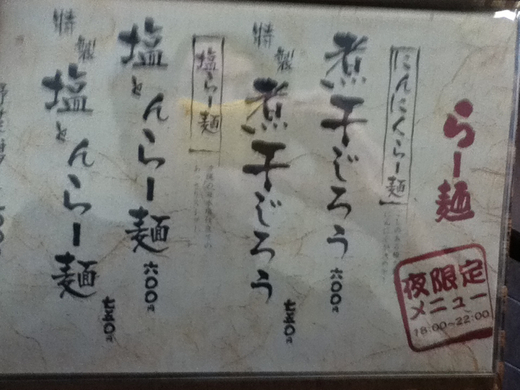 らー麺
夜限定
メニュー
18:00~22:00
にんにくらー麺
煮干じろう 六〇〇円
特製
煮干じろう 七五〇円
塩らー麺
塩とんらー麺 六〇〇円
特製
塩とんらー麺 七五〇円